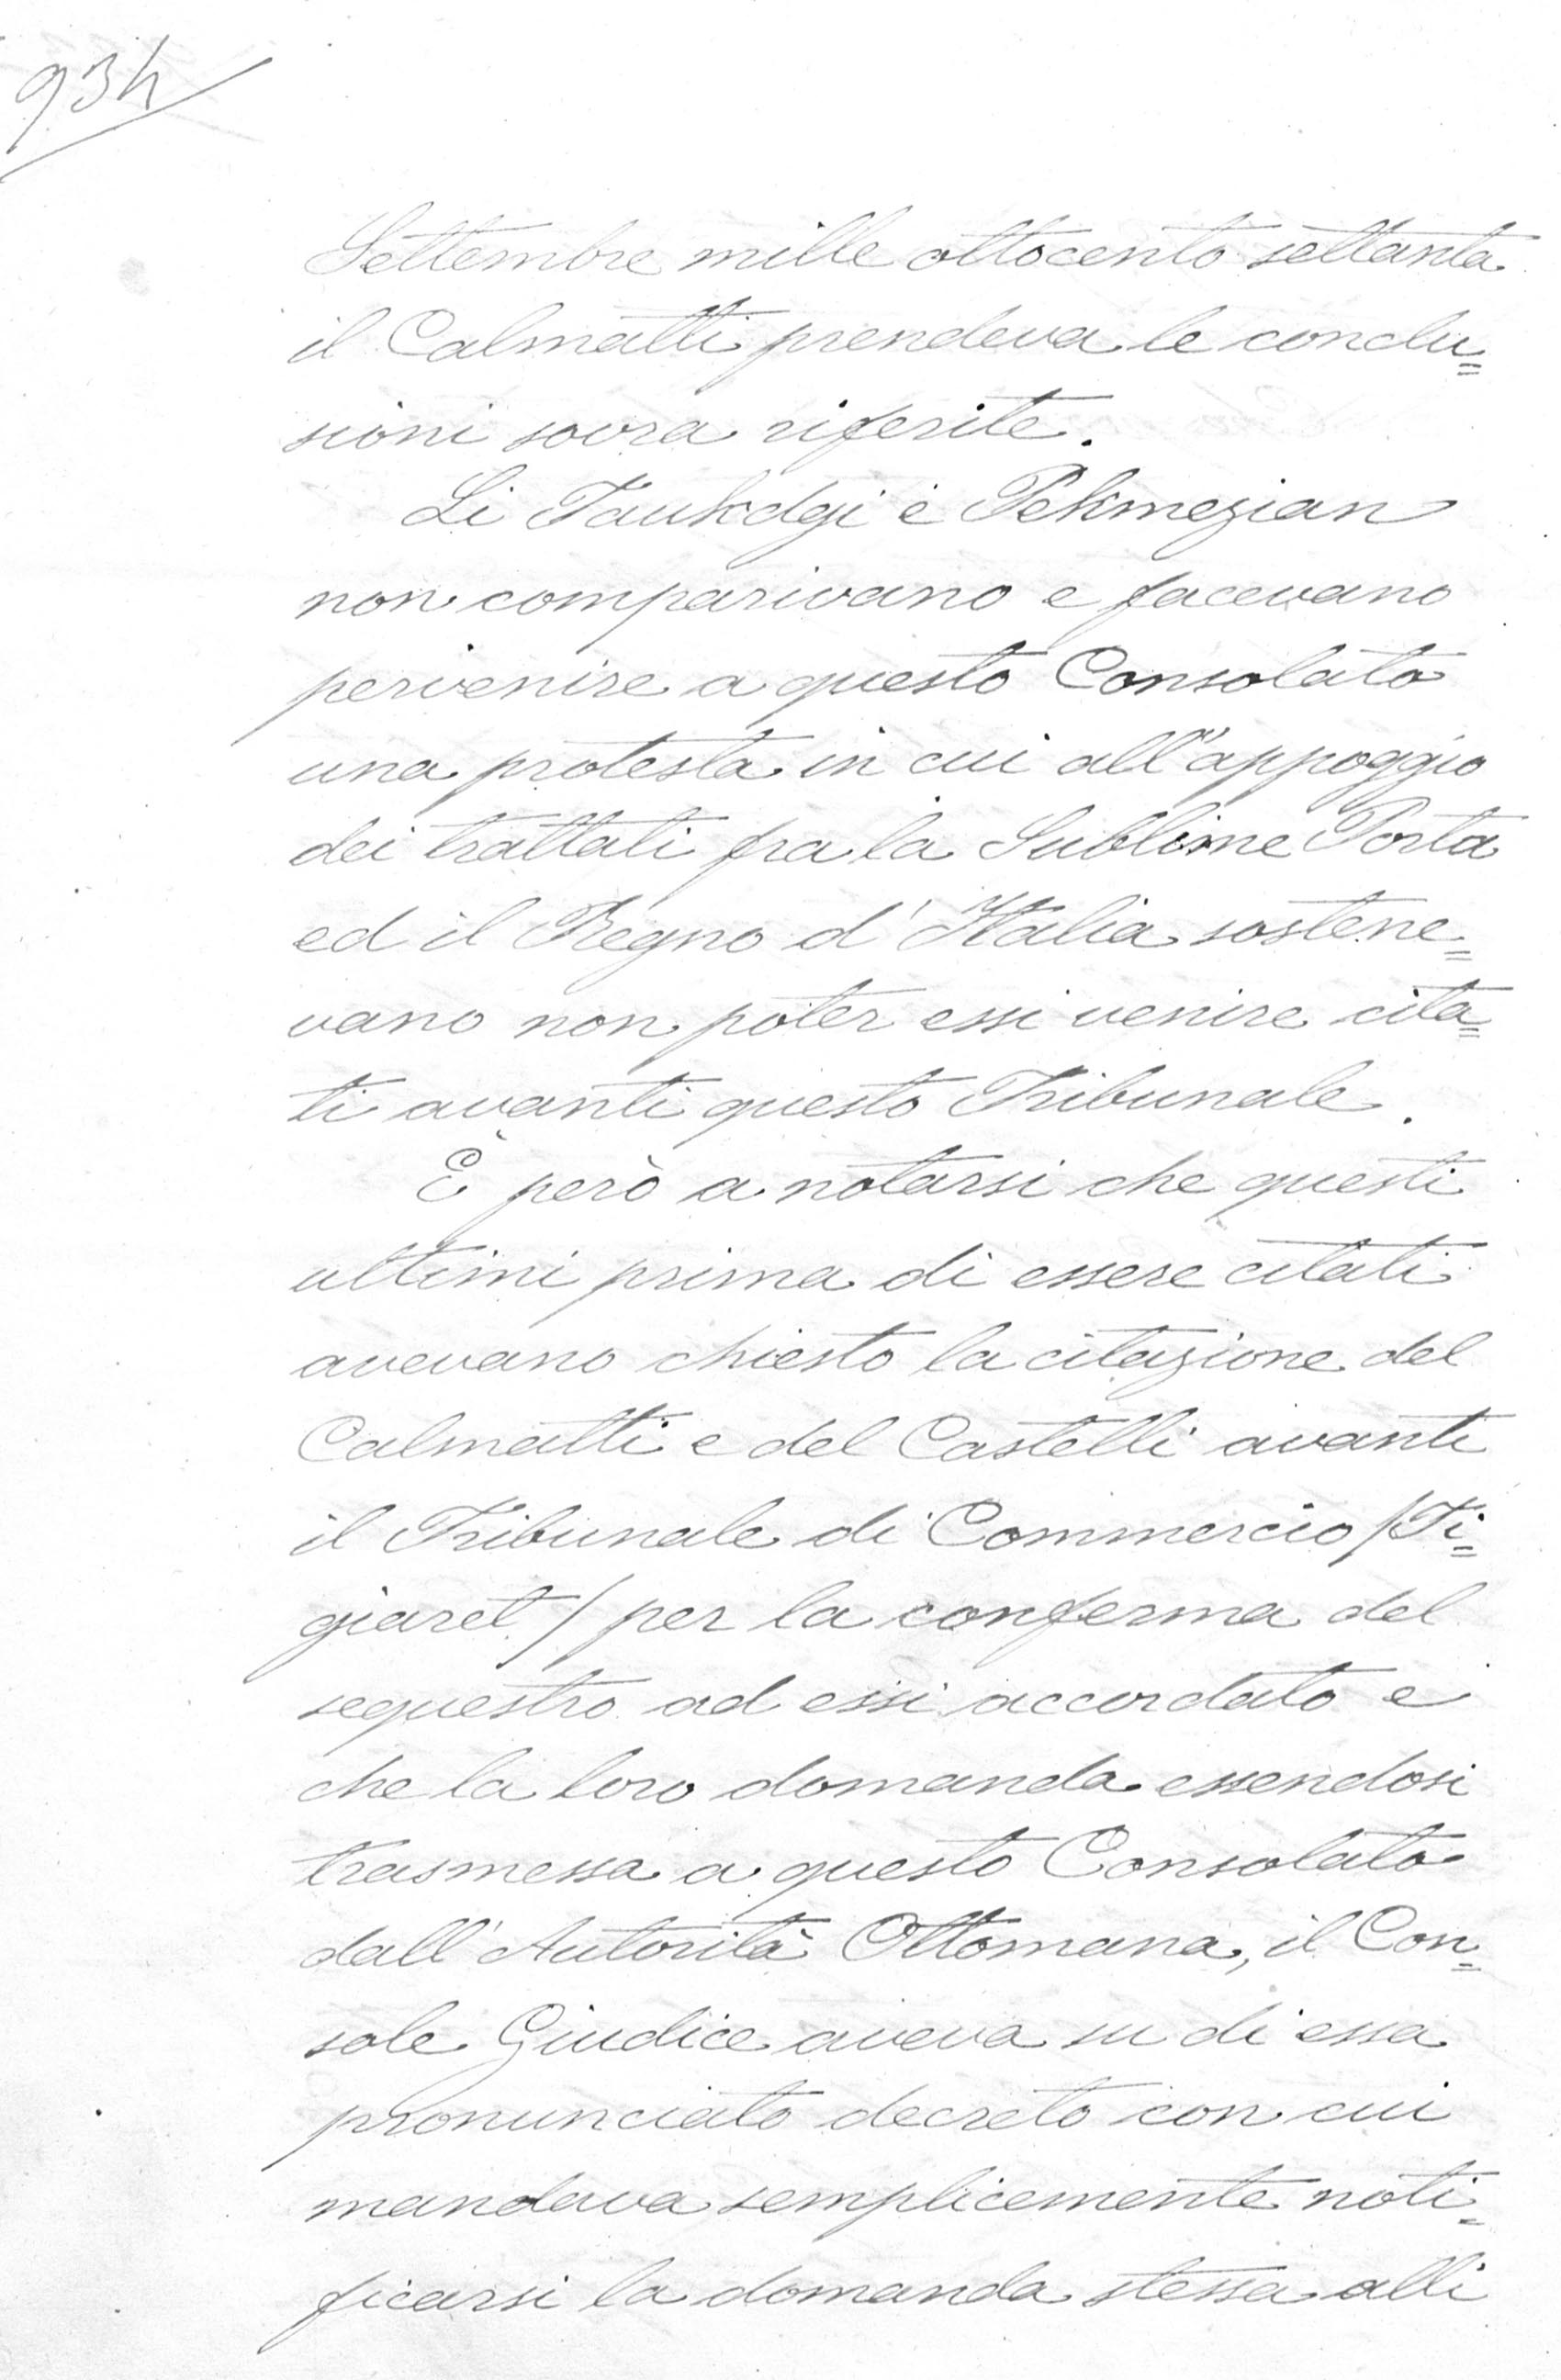 934
Settembre mille ottocento settanta
il Calmatti prendeva le conclu=
sioni sovra riferite.
Li Taukdgi e Pekmezian
non comparivano e facevano
pervenire a questo Consolato
una protesta in cui all'appoggio
dei trattati fra la Sublime Porta
ed il Regno d'Italia sostene=
vano non poter essi venire cita=
ti avanti questo Tribunale.
È però a notarsi che questi
ultimi prima di essere citati
avevano chiesto la citazione del
Calmatti e del Castelli avanti
il Tribunale di Commercio /Ti=
giaret/ per la conferma del
sequestro ad essi accordato e
che la loro domanda essendosi
trasmessa a questo Consolato
dall'Autorità Ottomana, il Con=
sole Giudice aveva su di essa
pronunciato decreto con cui
mandava semplicemente noti=
ficarsi la domanda stessa alli